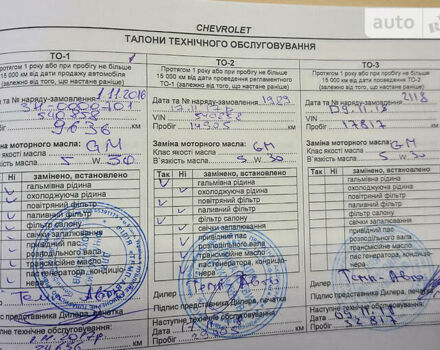 auto
CHEVROLET
ТАЛОНИ ТЕХНІЧНОГО ОБСЛУГОВУВАННЯ
ТО-1
Протягом 1 року або при пробігу не більше
15 000 км від дати продажу автомобіля
(в залежності, що настане раніше)
Дата та № наряду-замовлення 1.11.2016
Пробіг 9636 км
Заміна моторного масла: GM
Клас якості масла
В'язкість масла 5 W 30
Так Ні замінено, встановлено
гальмівна рідина
охолоджуюча рідина
повітряний фільтр
паливний фільтр
фільтр салону
свічки запалювання
привідний пас
розподільного вала
трансмісійне масло
пас генератора, кондиціо-
нера
Дилер
Підпис представника Дилера, печатка
Наступне технічне обслуговування:
ТО-2
Протягом 1 року або при пробігу не більше
15 000 км від дати проведення регламентного
ТО-1 (в залежності, що настане раніше)
Дата та № наряду-замовлення 1929
VIN
Пробіг 14595 км
Заміна моторного масла: GM
Клас якості масла
В'язкість масла 5 W 30
Так Ні замінено, встановлено
гальмівна рідина
охолоджуюча рідина
повітряний фільтр
паливний фільтр
фільтр салону
свічки запалювання
привідний пас
розподільного вала
трансмісійне масло
пас генератора, кондиціо-
нера
Дилер
Підпис представника Дилера, печатка
Наступне технічне обслуговування:
Дата
Пробіг км
ТО-3
Протягом 1 року або при пробігу не більше
15 000 км від дати проведення регламентного
ТО-2 (в залежності, що настане раніше)
Дата та № наряду-замовлення 2118
09.11.18
VIN
Пробіг 17817 км
Заміна моторного масла: GM
Клас якості масла
В'язкість масла 5 W 30
Так Ні замінено, встановлено
гальмівна рідина
охолоджуюча рідина
повітряний фільтр
паливний фільтр
фільтр салону
свічки запалювання
привідний пас
розподільного вала
трансмісійне масло
пас генератора, кондиціо-
нера
Дилер
Підпис представника Дилера, печатка
Наступне технічне обслуговування:
Дата
Пробіг 32817 км